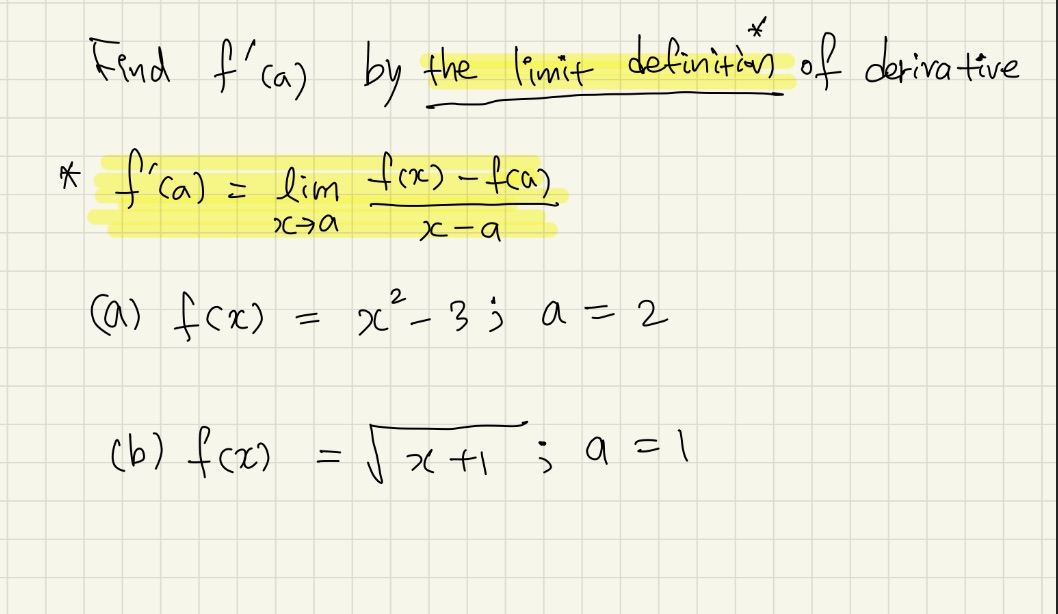 Find f'(a) by the limit definition* of derivative
* f'(a) = lim x→a (f(x) - f(a))/(x - a)
(a) f(x) = x² - 3 ; a = 2
(b) f(x) = √(x+1) ; a = 1